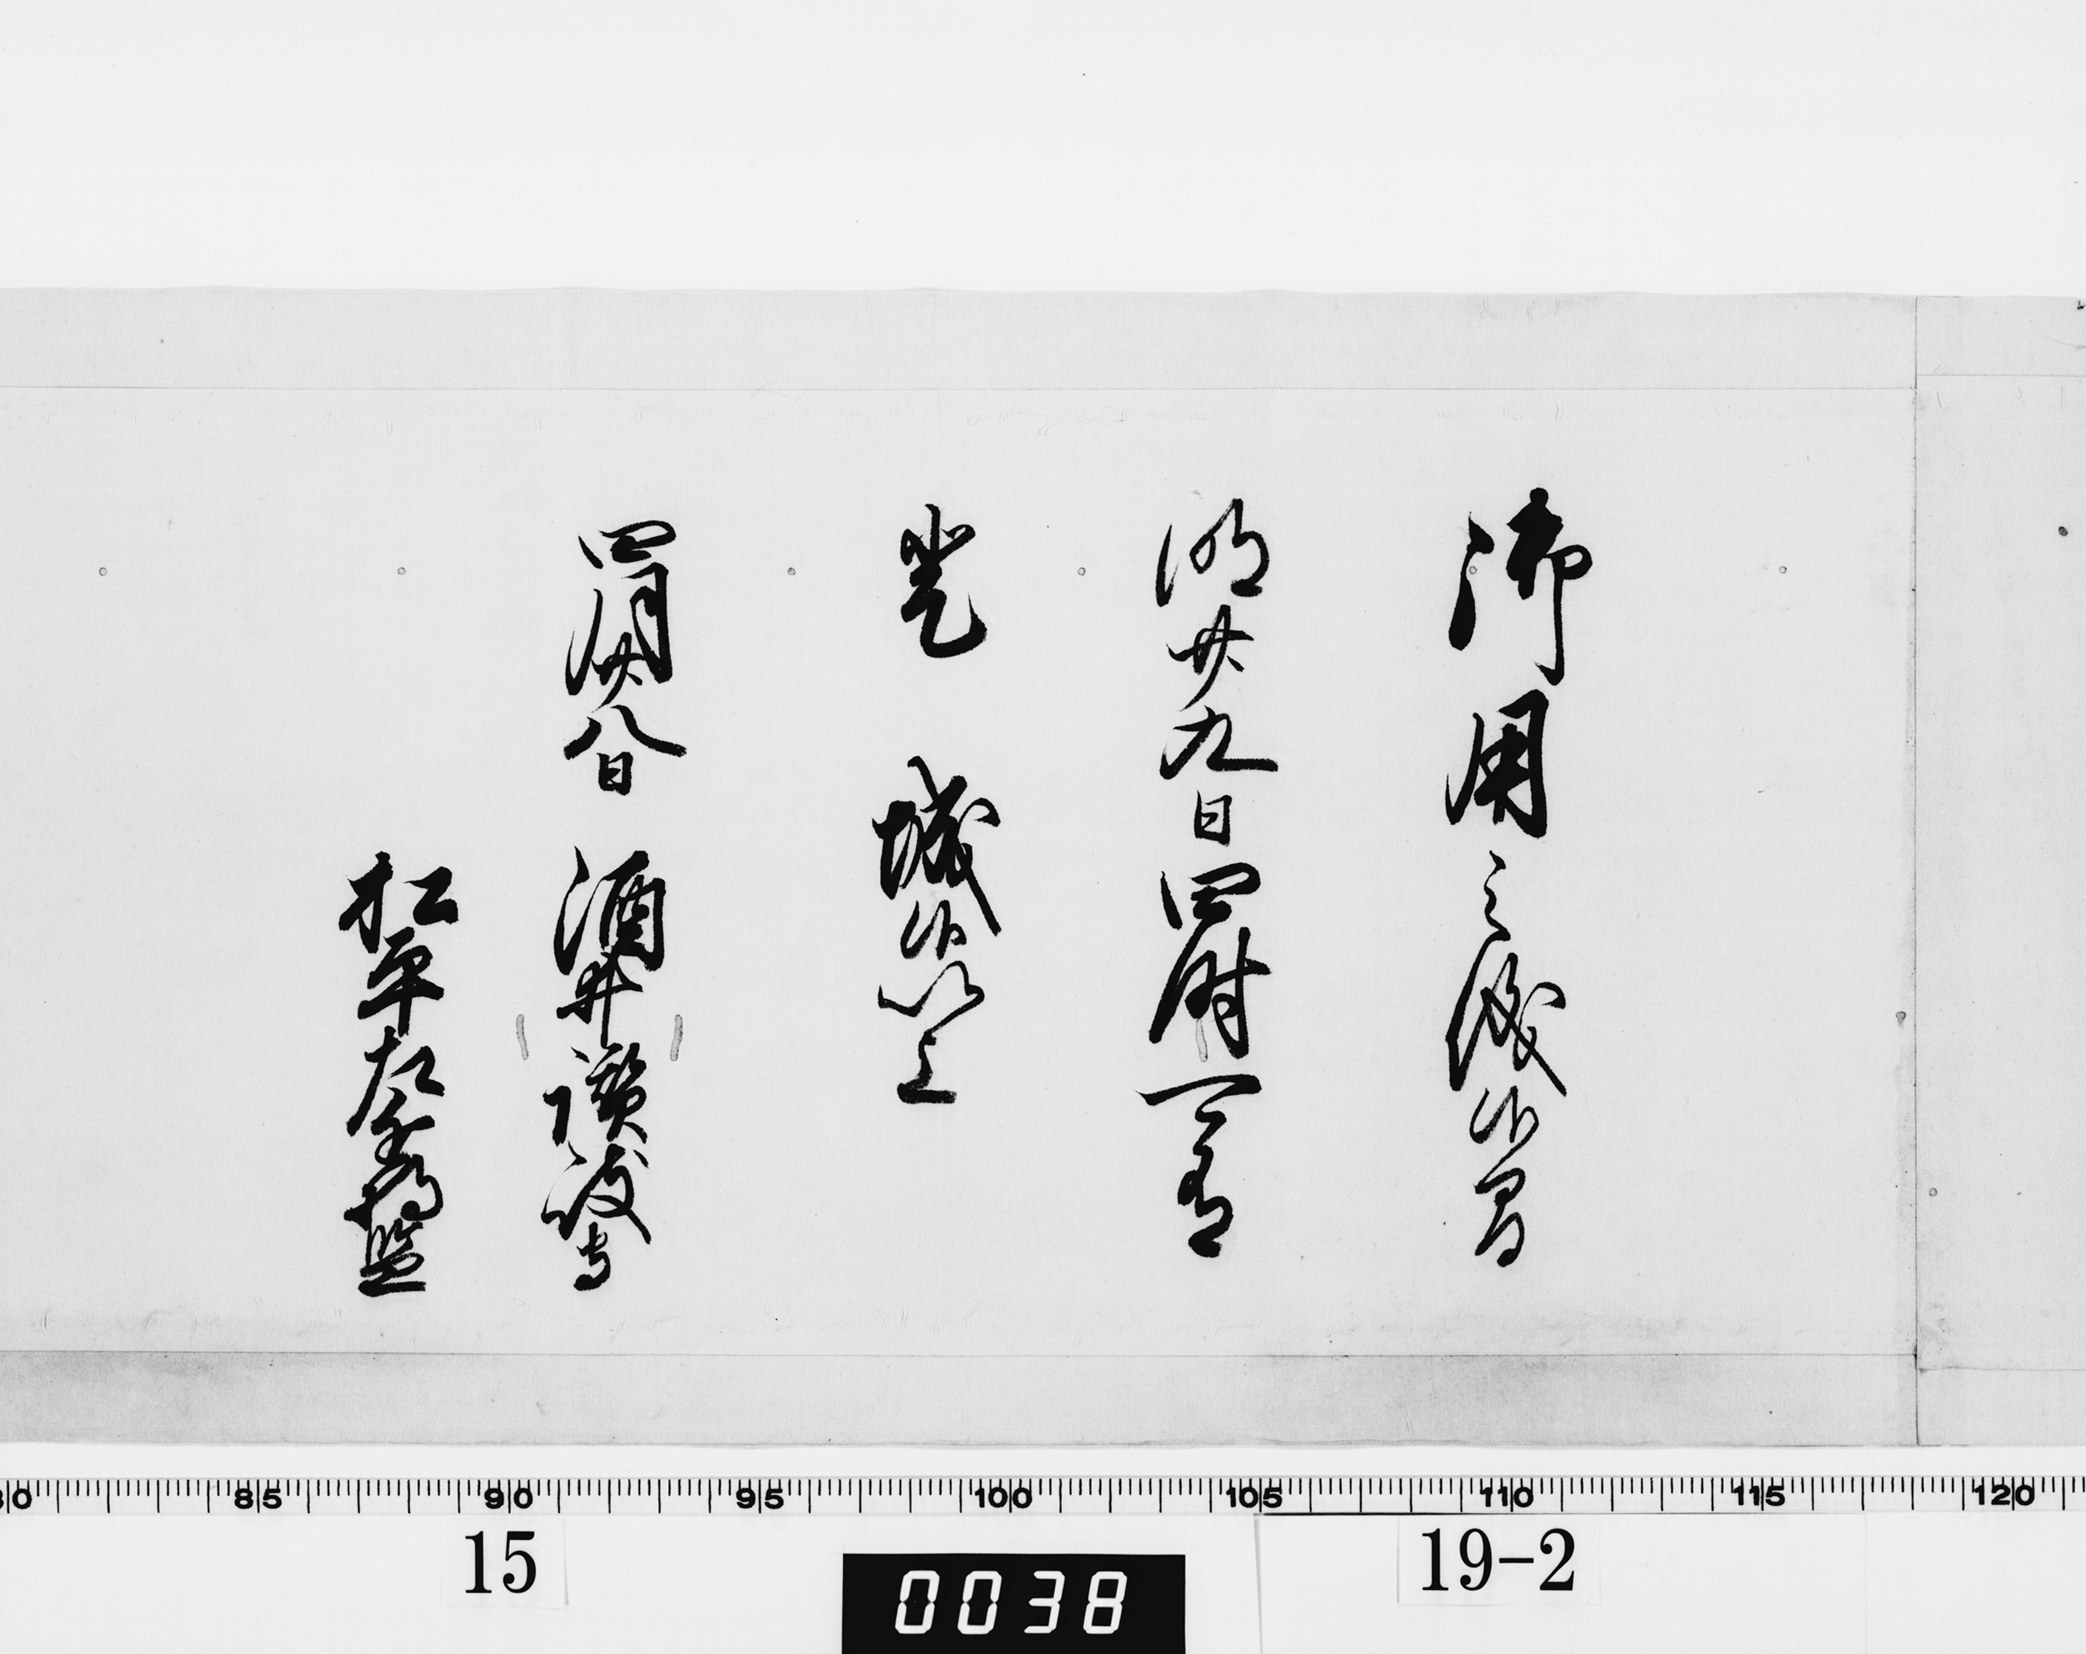 御用之儀候間
明廿九日四時可有
登　城候以上
四月廿八日　酒井讃岐守
松平左近将監
85 90 95 100 105 110 115 120
15 0038 19-2